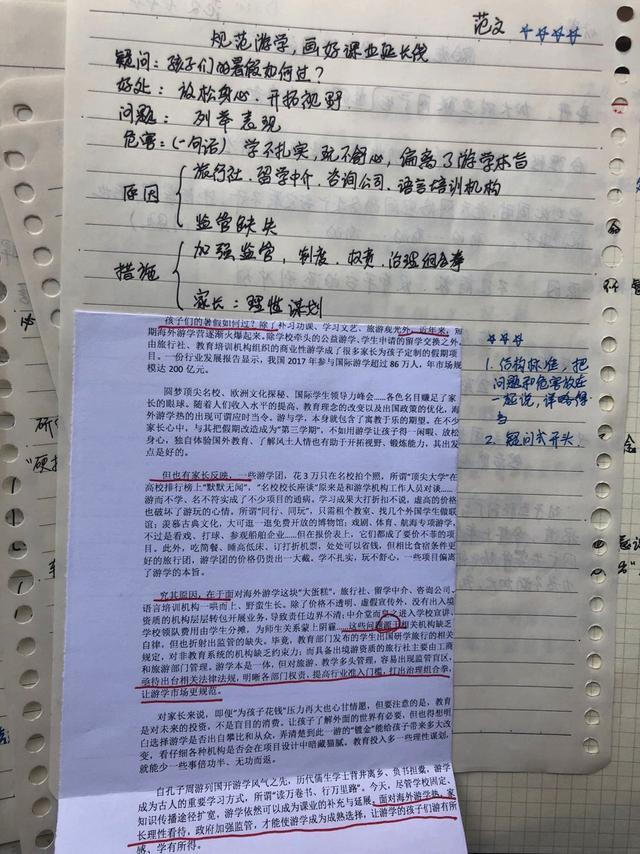 范文 ☆☆☆☆
规范游学,画好课业延长线
疑问:孩子们的暑假如何过?
好处:放松身心、开拓视野
问题:列举表现
危害:(一句话)学不扎实,玩不舒心,偏离了游学本旨
原因
旅行社、留学中介、咨询公司、语言培训机构
监管缺失
措施
加强监管,制度、权责、治理组合拳
家长:理性谋划
孩子们的暑假如何过?除了补习功课、学习文艺、旅游观光外,近年来,短
期海外游学营逐渐火爆起来。除学校牵头的公益游学、学生申请的留学交换之外,
由旅行社、教育培训机构组织的商业性游学成了很多家长为孩子定制的假期项
目。一份行业发展报告显示,我国 2017 年参与国际游学超过 86 万人,年市场规
模达 200 亿元。
圆梦顶尖名校、欧洲文化探秘、国际学生领导力峰会……各色名目赚足了家
长的眼球。随着人们收入水平的提高、教育理念的改变以及出国政策的优化,海
外游学热的出现可谓应时当令。游与学,本身就包含了寓教于乐的期望。在不少
家长心中,与其把假期改造成为“第三学期”,不如用游学让孩子得一闲暇、放松
身心,独自体验国外教育、了解风土人情也有助于开拓视野、锻炼能力,其出发
点是好的。
但也有家长反映,一些游学团,花 3 万只在名校拍个照,所谓“顶尖大学”在
高校排行榜上“默默无闻”,“名校校长座谈”原来是和游学机构工作人员对谈……
游而不学、名不符实成了不少项目的通病,学习成果大打折扣不说,虚高的价格
也破坏了游玩的心情。所谓“同行、同玩”,只需租个教室、找几个外国学生做联
谊;羡慕古典文化,大可逛一逛免费开放的博物馆;戏剧、体育、航海专项游学,
不过是看戏、打球、参观船舶企业……但在报价表上,它们都成了要价不菲的项
目。此外,吃简餐、睡高低床、订打折机票,处处可以省钱,但相比食宿条件更
好的旅行团,游学团的价格仍贵出一大截。学不扎实,玩不舒心,一些项目偏离
了游学的本旨。
究其原因,在于面对海外游学这块“大蛋糕”,旅行社、留学中介、咨询公司、
语言培训机构一哄而上、野蛮生长。除了价格不透明、虚假宣传外,没有出入境
资质的机构层层转包开展业务,导致责任边界不清;中介堂而皇之进入学校宣讲,
学校领队费用由学生分摊,为师生关系蒙上阴霾……这些问题源于相关机构缺乏
自律,但也折射出监管的缺失。毕竟,教育部门发布的学生出国研学旅行的相关
规定,对非教育系统的机构缺乏约束力;而具备出境游资质的旅行社主要由工商
和旅游部门管理。游学本是一体,但对旅游、教学多头管理,容易出现监管盲区,
亟待出台相关法律法规,明晰各部门权责,提高行业准入门槛,打出治理组合拳,
让游学市场更规范。
对家长来说,即便“为孩子花钱”压力再大也心甘情愿,但要注意的是,教育
是对未来的投资,不是盲目的消费。让孩子了解外面的世界有必要,但也得想明
白选择游学是否出自攀比和从众,弄清楚到此一游的“镀金”能给孩子带来多大改
变,看仔细各种机构是否会在项目设计中暗藏猫腻。教育投入多一些理性谋划,
就能少一些事倍功半、无功而返。
自孔子周游列国开游学风气之先,历代儒生学士背井离乡、负书担囊,游学
成为古人的重要学习方式,所谓“读万卷书、行万里路”。今天,尽管学校固定、
知识传播途径扩宽,游学依然可以成为课业的补充与延展。面对海外游学热,家
长理性看待,政府加强监管,才能使游学成为成熟选择,让游学的孩子们游有所
感、学有所得。
☆☆☆☆
1. 结构标准,把
问题和危害放在
一起说,详略得
当
2. 疑问式开头